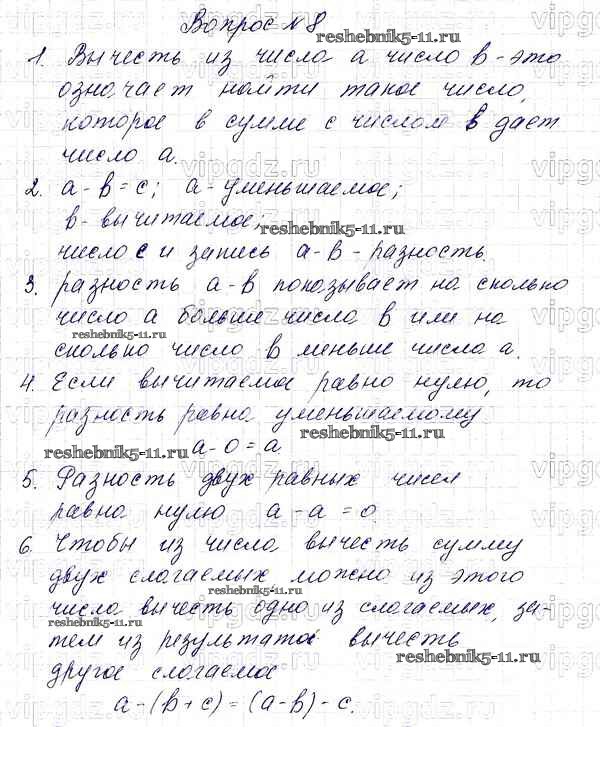 Вопрос №8
1. Вычесть из числа a число b - это
означает найти такое число,
которое в сумме с числом b дает
число a.
2. a - b = c; a - уменьшаемое;
b - вычитаемое;
число c и запись a - b - разность.
3. разность a - b показывает на сколько
число a больше числа b или на
сколько число b меньше числа a.
4. Если вычитаемое равно нулю, то
разность равна уменьшаемому
a - 0 = a
5. Разность двух равных чисел
равна нулю a - a = 0.
6. Чтобы из числа вычесть сумму
двух слагаемых можно из этого
числа вычесть одно из слагаемых, за-
тем из результата вычесть
другое слагаемое
a - (b + c) = (a - b) - c.
reshebnik5-11.ru
reshebnik5-11.ru
reshebnik5-11.ru
reshebnik5-11.ru
reshebnik5-11.ru
reshebnik5-11.ru
reshebnik5-11.ru
vipgdz.ru